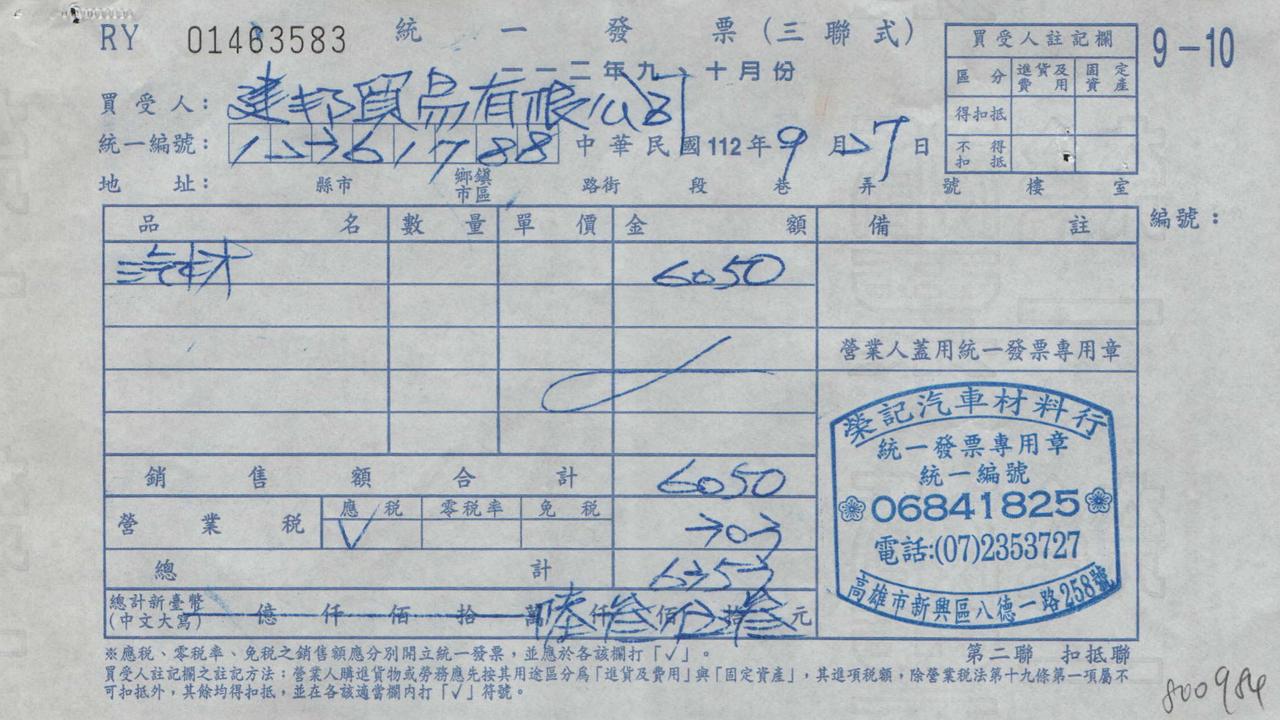 RY 01463583 統一發票(三聯式)
一一二年九、十月份
9-10
買受人註記欄
區分 進貨及費用 固定資產
得扣抵
不得扣抵
買受人：建邦貿易有限公司
統一編號：12361788 中華民國112年9月27日
地址： 縣市 鄉鎮市區 路街 段 巷 弄 號 樓 室
品名 數量 單價 金額 備註 編號：
汽材 6050
營業人蓋用統一發票專用章
銷售額合計 6050
營業稅 應稅 零稅率 免稅 303
√
總計 6353
總計新臺幣(中文大寫) 億 仟 佰 拾 萬 陸仟叁佰伍拾叁元
榮記汽車材料行
統一發票專用章
統一編號
06841825
電話:(07)2353727
高雄市新興區八德一路258號
※應稅、零稅率、免稅之銷售額應分別開立統一發票，並應於各該欄打「√」。
第二聯 扣抵聯
買受人註記欄之註記方法：營業人購進貨物或勞務應先按其用途區分為「進貨及費用」與「固定資產」，其進項稅額，除營業稅法第十九條第一項屬不
可扣抵外，其餘均得扣抵，並在各該適當欄內打「√」符號。
800984